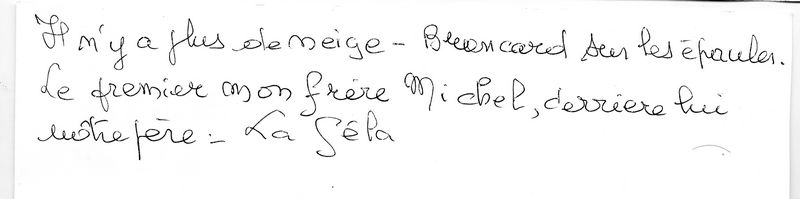 Il n'y a plus de neige - Brancard sur les épaules.
Le premier mon frère Michel, derriere lui
notre père - La